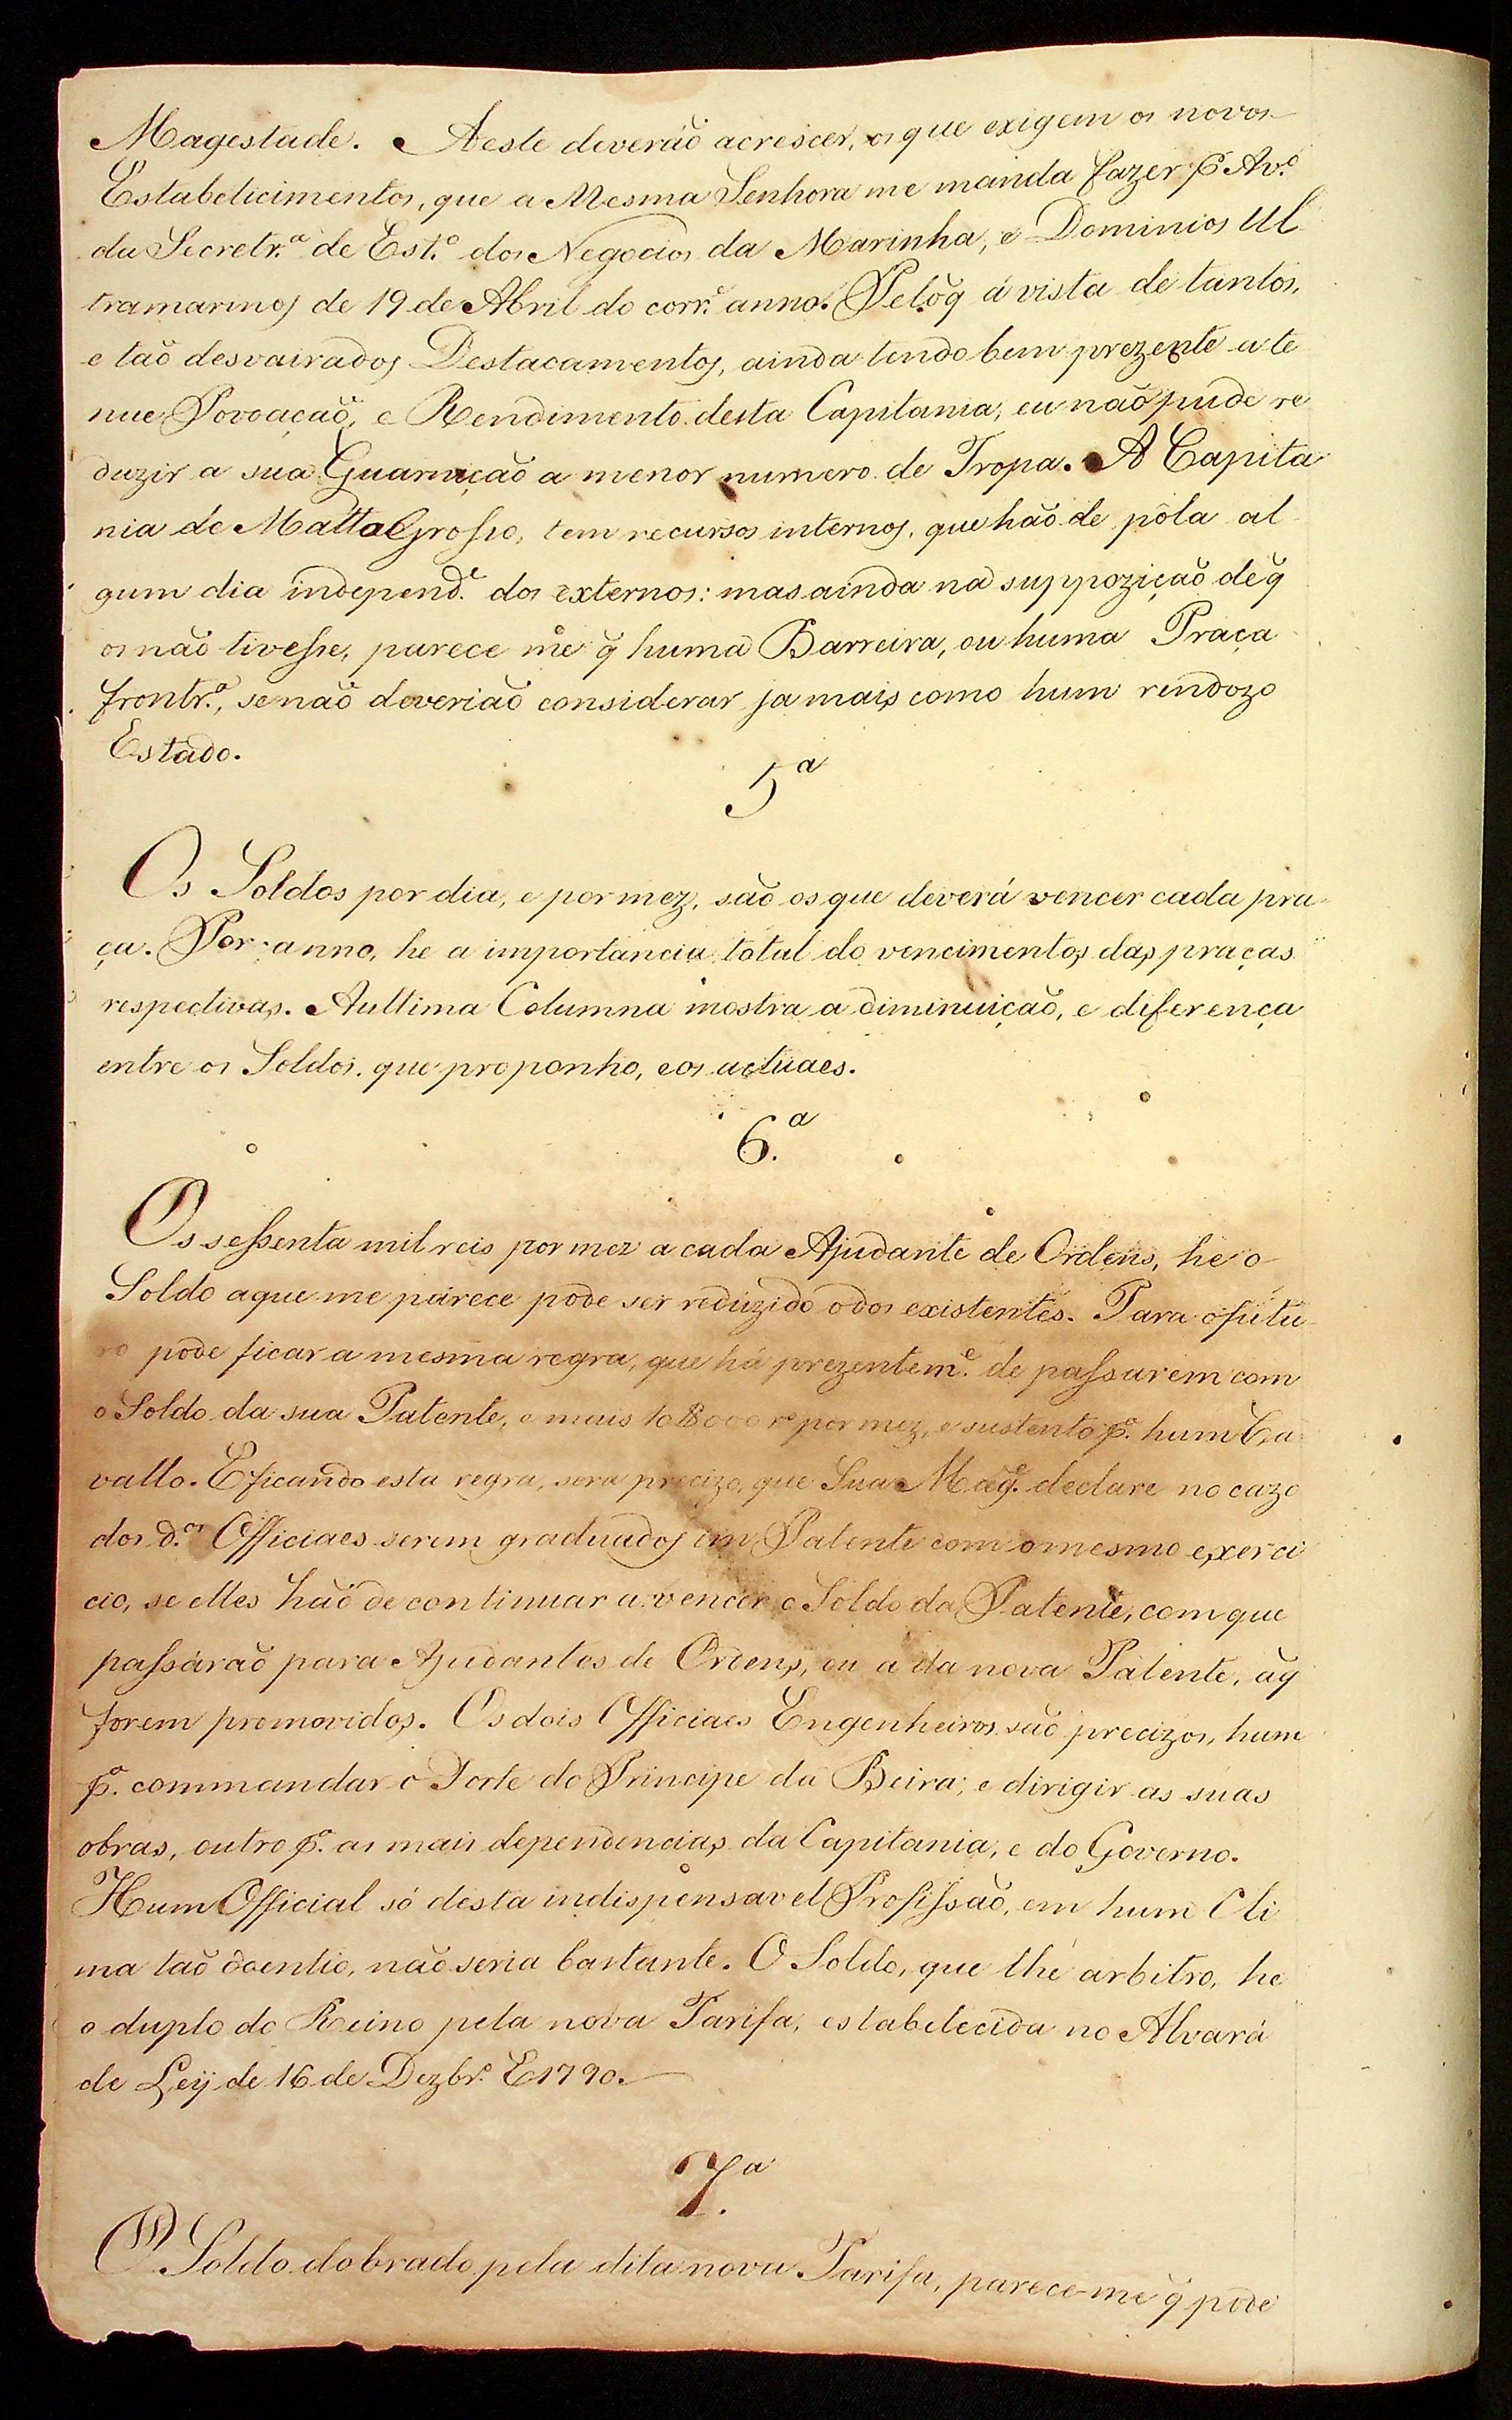 Magestade. Aeste deverão acrescer, os que exigem os novos
Estabelicimentos, que a Mesma Senhora me manda fazer p Av.º
da Secretr.ª de Est.º dos Negocios da Marinha, e Dominios Ul
tramarinos de 19 de Abril do corr.e anno. Pelo q̃ á vista de tantos,
e taõ desvairados Destacamentos, ainda tendo bem prezente a te
nue Povoaçaõ, e Rendimento desta Capitania, eu naõ pude re
duzir a sua Guarniçaõ a menor numero de Tropa. A Capita
nia de Matto Grosso, tem recursos internos, que haõ de pôla al
gum dia independ.e dos externos: mas ainda na suppoziçaõ de q̃
os naõ tivesse, parece me q̃ huma Barreira, ou huma Praça
frontr.ª, se naõ deveriaõ considerar ja mais como hum rendozo
Estado.
5ª
Os Soldos por dia, e por mez, saõ os que deverá vencer cada pra
ça. Por anno, he a importancia total do vencimentos das praças
respectivas. A ultima Columna mostra a diminuiçaõ, e diferença
entre os Soldos, que proponho, e os actuaes.
6.ª
Os sessenta mil reis por mez a cada Ajudante de Ordens, he o
Soldo a que me parece pode ser reduzido o dos existentes. Para o futu
ro pode ficar a mesma regra, que há prezentem.e de passarem com
o Soldo da sua Patente, e mais 10$000 r.s por mez, e sustento p.ª hum Ca
vallo. E ficando esta regra, sera precizo, que Sua Mag.e declare no cazo
dos d.os Officiaes serem graduados em Patente com o mesmo exerci
cio, se elles haõ de continuar a vencer o Soldo da Patente, com que
passáraõ para Ajudantes de Ordens, ou a da nova Patente, a q̃
forem promovidos. Os dois Officiaes Engenheiros saõ precizos, hum
p.ª commandar o Forte do Principe da Beira; e dirigir as suas
obras, outro p.ª as mais dependencias da Capitania, e do Governo.
Hum Official só desta indispensavel Profissaõ, em hum Cli
ma taõ doentio, naõ seria bastante. O Soldo, que lhe arbitro, he
o duplo do Reino pela nova Tarifa, estabelecida no Alvará
de Ley de 16 de Dezbr.º E 1790.
7.ª
O Soldo dobrado pela dita nova Tarifa, parece-me q̃ pode